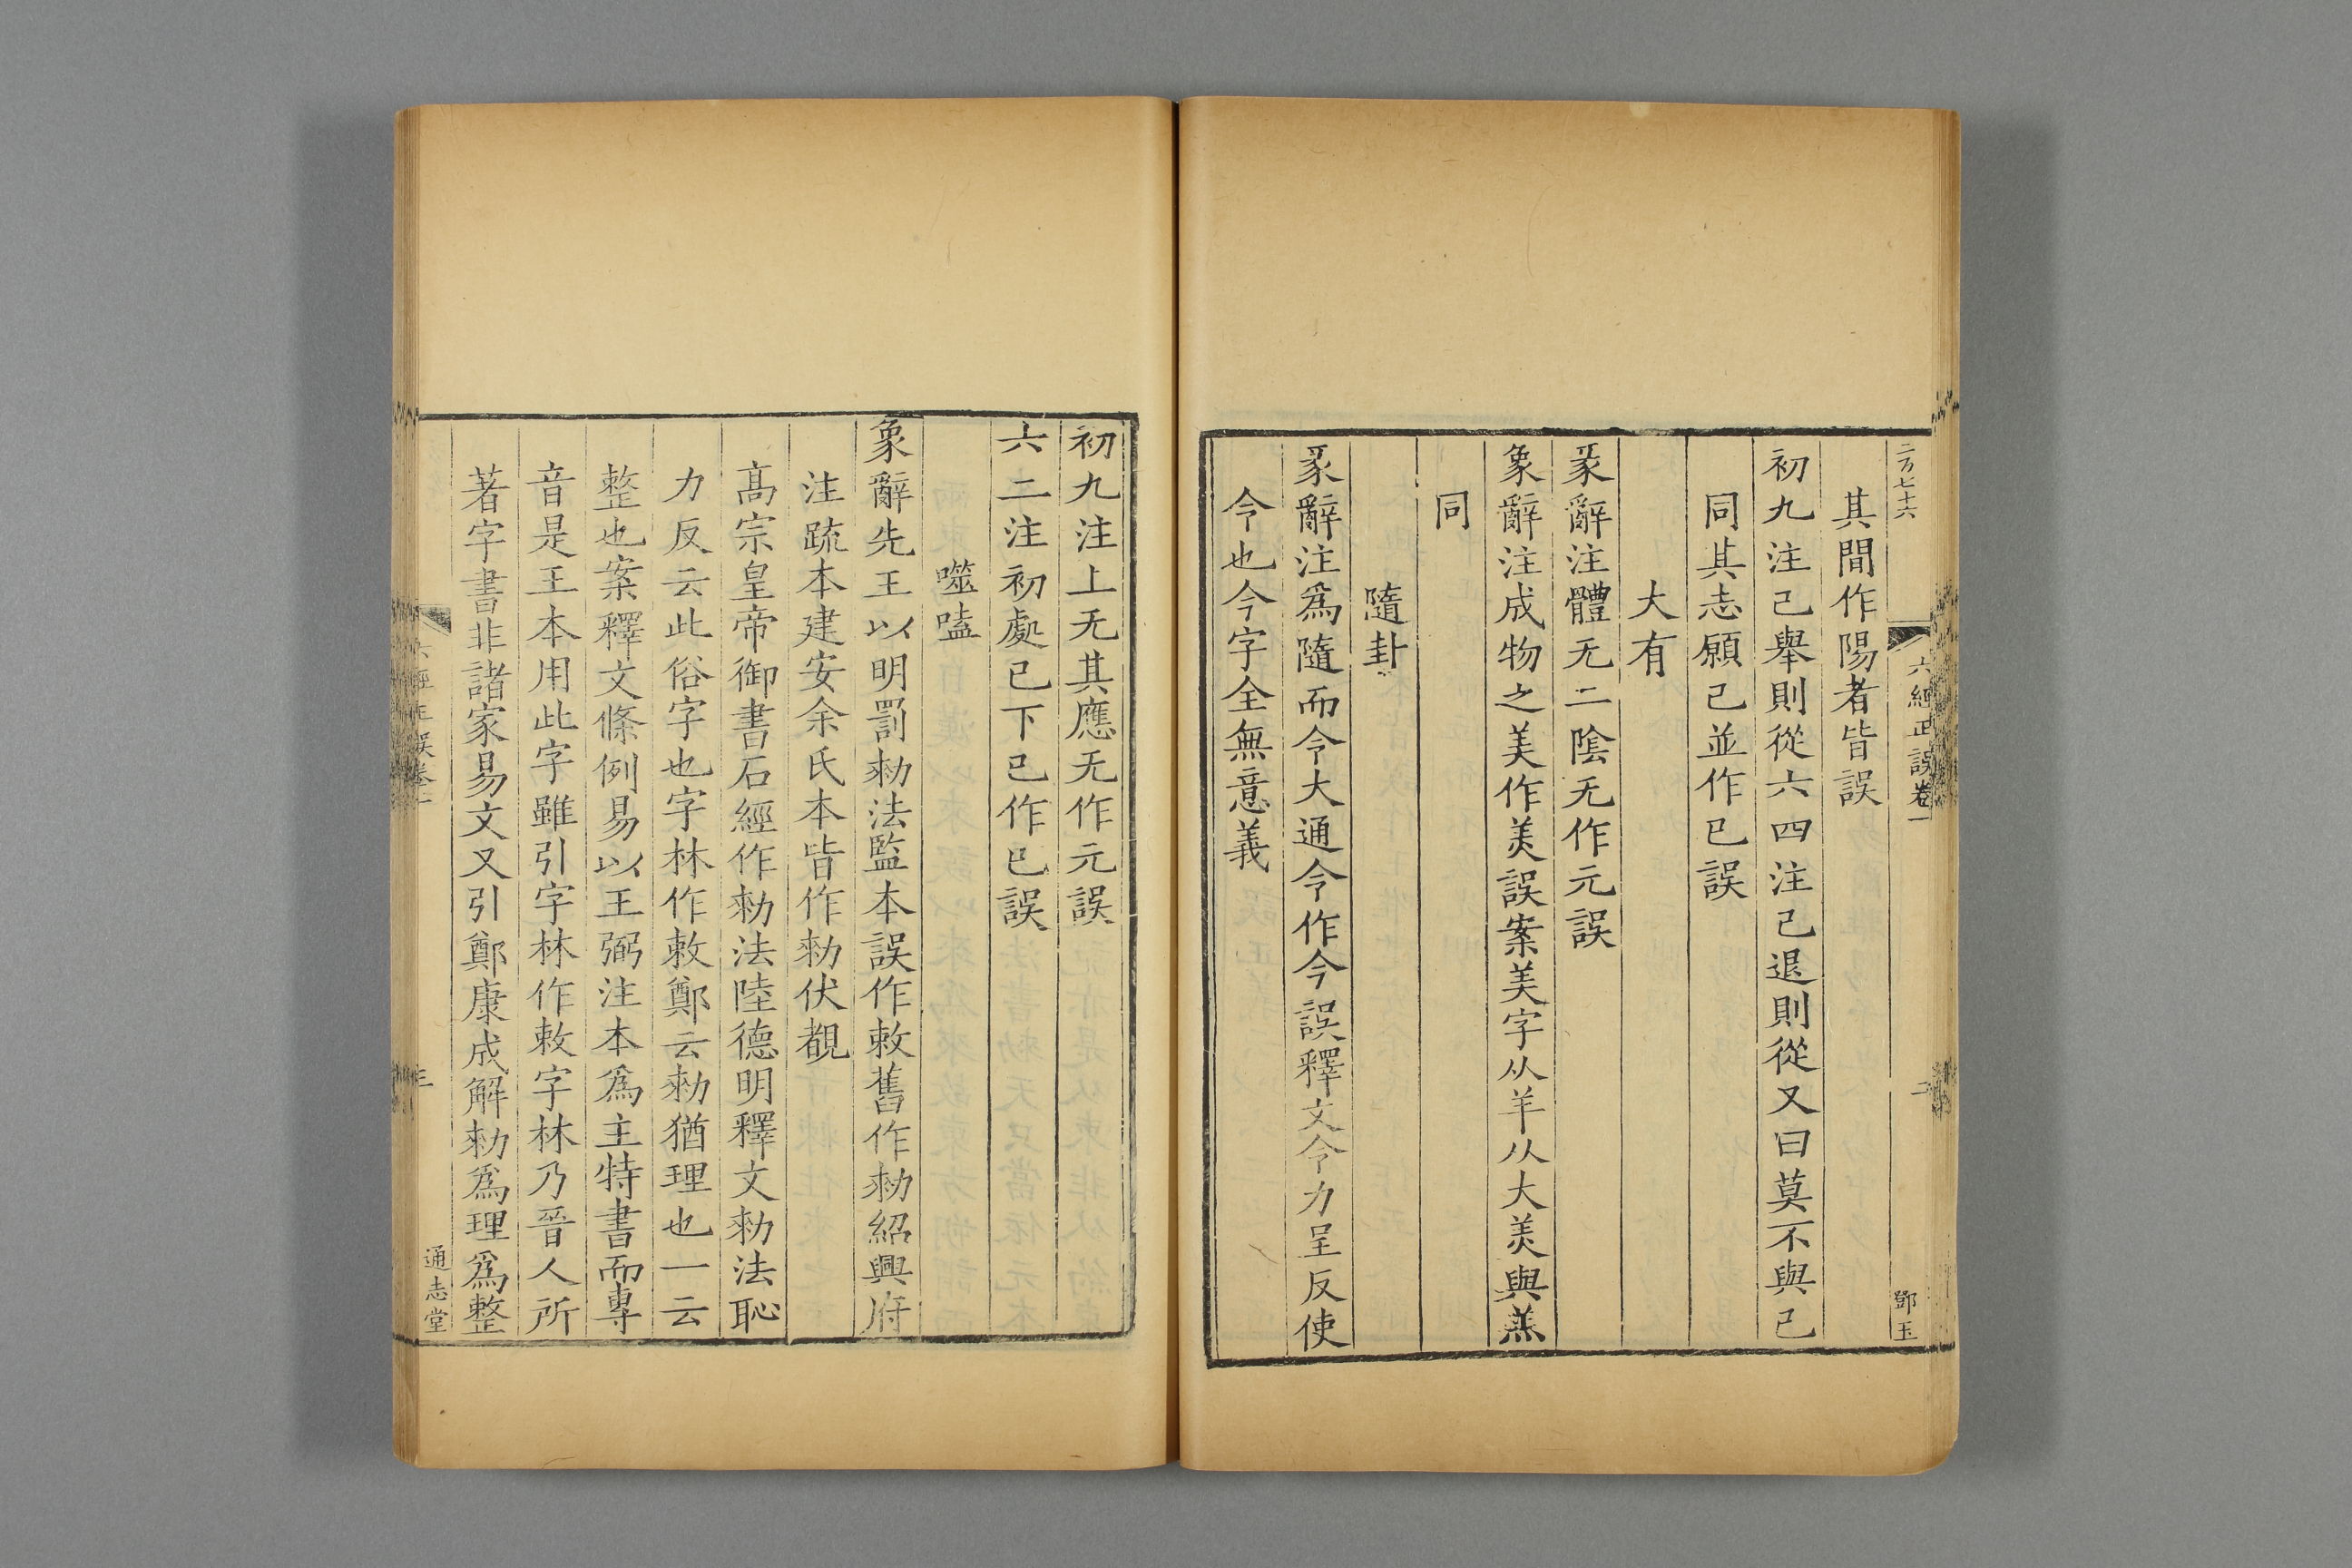 二万七十六
六經正誤卷一
二
鄧玉
其間作陽者皆誤
初九注己舉則從六四注己退則從又曰莫不與己
同其志願己並作已誤
大有
彖辭注體无二陰无作元誤
象辭注成物之美作羙誤案美字从羊从大羙與羔
同
隨卦
彖辭注爲隨而令大通令作今誤釋文令力呈反使
今也今字全無意義
初九注上无其應无作元誤
六二注初處已下已作巳誤
噬嗑
象辭先王以明罰勑法監本誤作敕舊作勑紹興府
注䟽本建安余氏本皆作勑伏覩
髙宗皇帝御書石經作勑法陸德明釋文勑法恥
力反云此俗字也字林作敕鄭云勑猶理也一云
整也案釋文條例易以王弼注本爲主特書而專
音是王本用此字雖引字林作敕字林乃晉人所
著字書非諸家易文又引鄭康成解勑爲理爲整
六經正誤卷一
三
通志堂